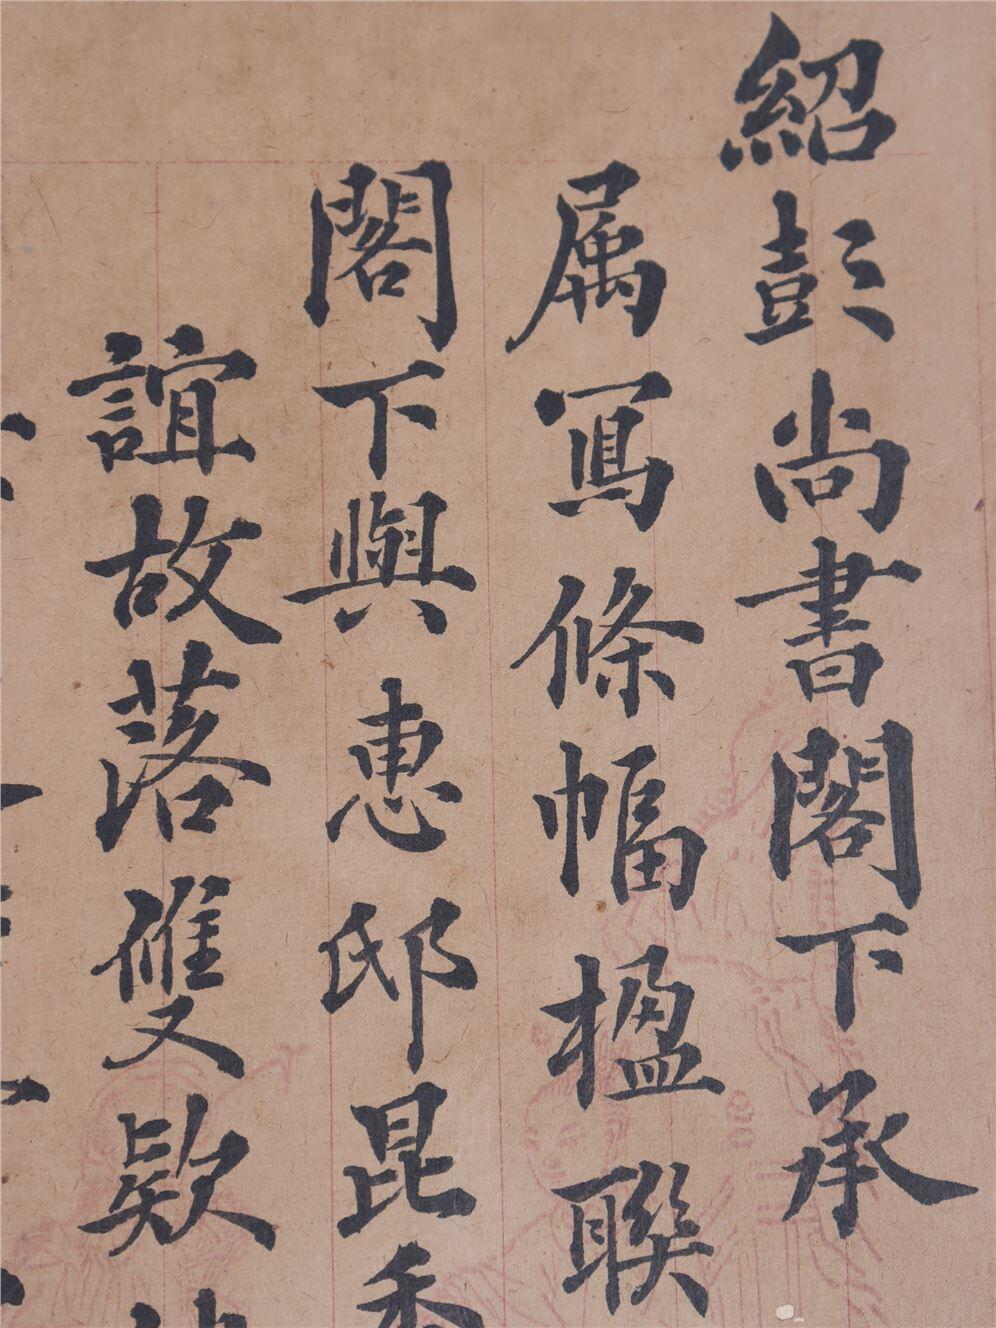 紹彭尚書閣下承
属寫條幅楹聯
閣下與惠邸昆季
誼故落雙款